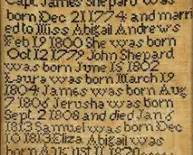 Capt James Shepard was
born Dec 21 1774 and marri
ed to Miss Abigail Andrews
Feb 19 1800 She was born
Oct 12 1779 John Shepard
was born June 15 1802
Laura was born March 19
1804 James was born Aug
7 1806 Jerusha was born
Sept 2 1808 and died Jan 5
1813 Samuel was born Dec
10 1813 Eliza Abigail
was born Aug 1820